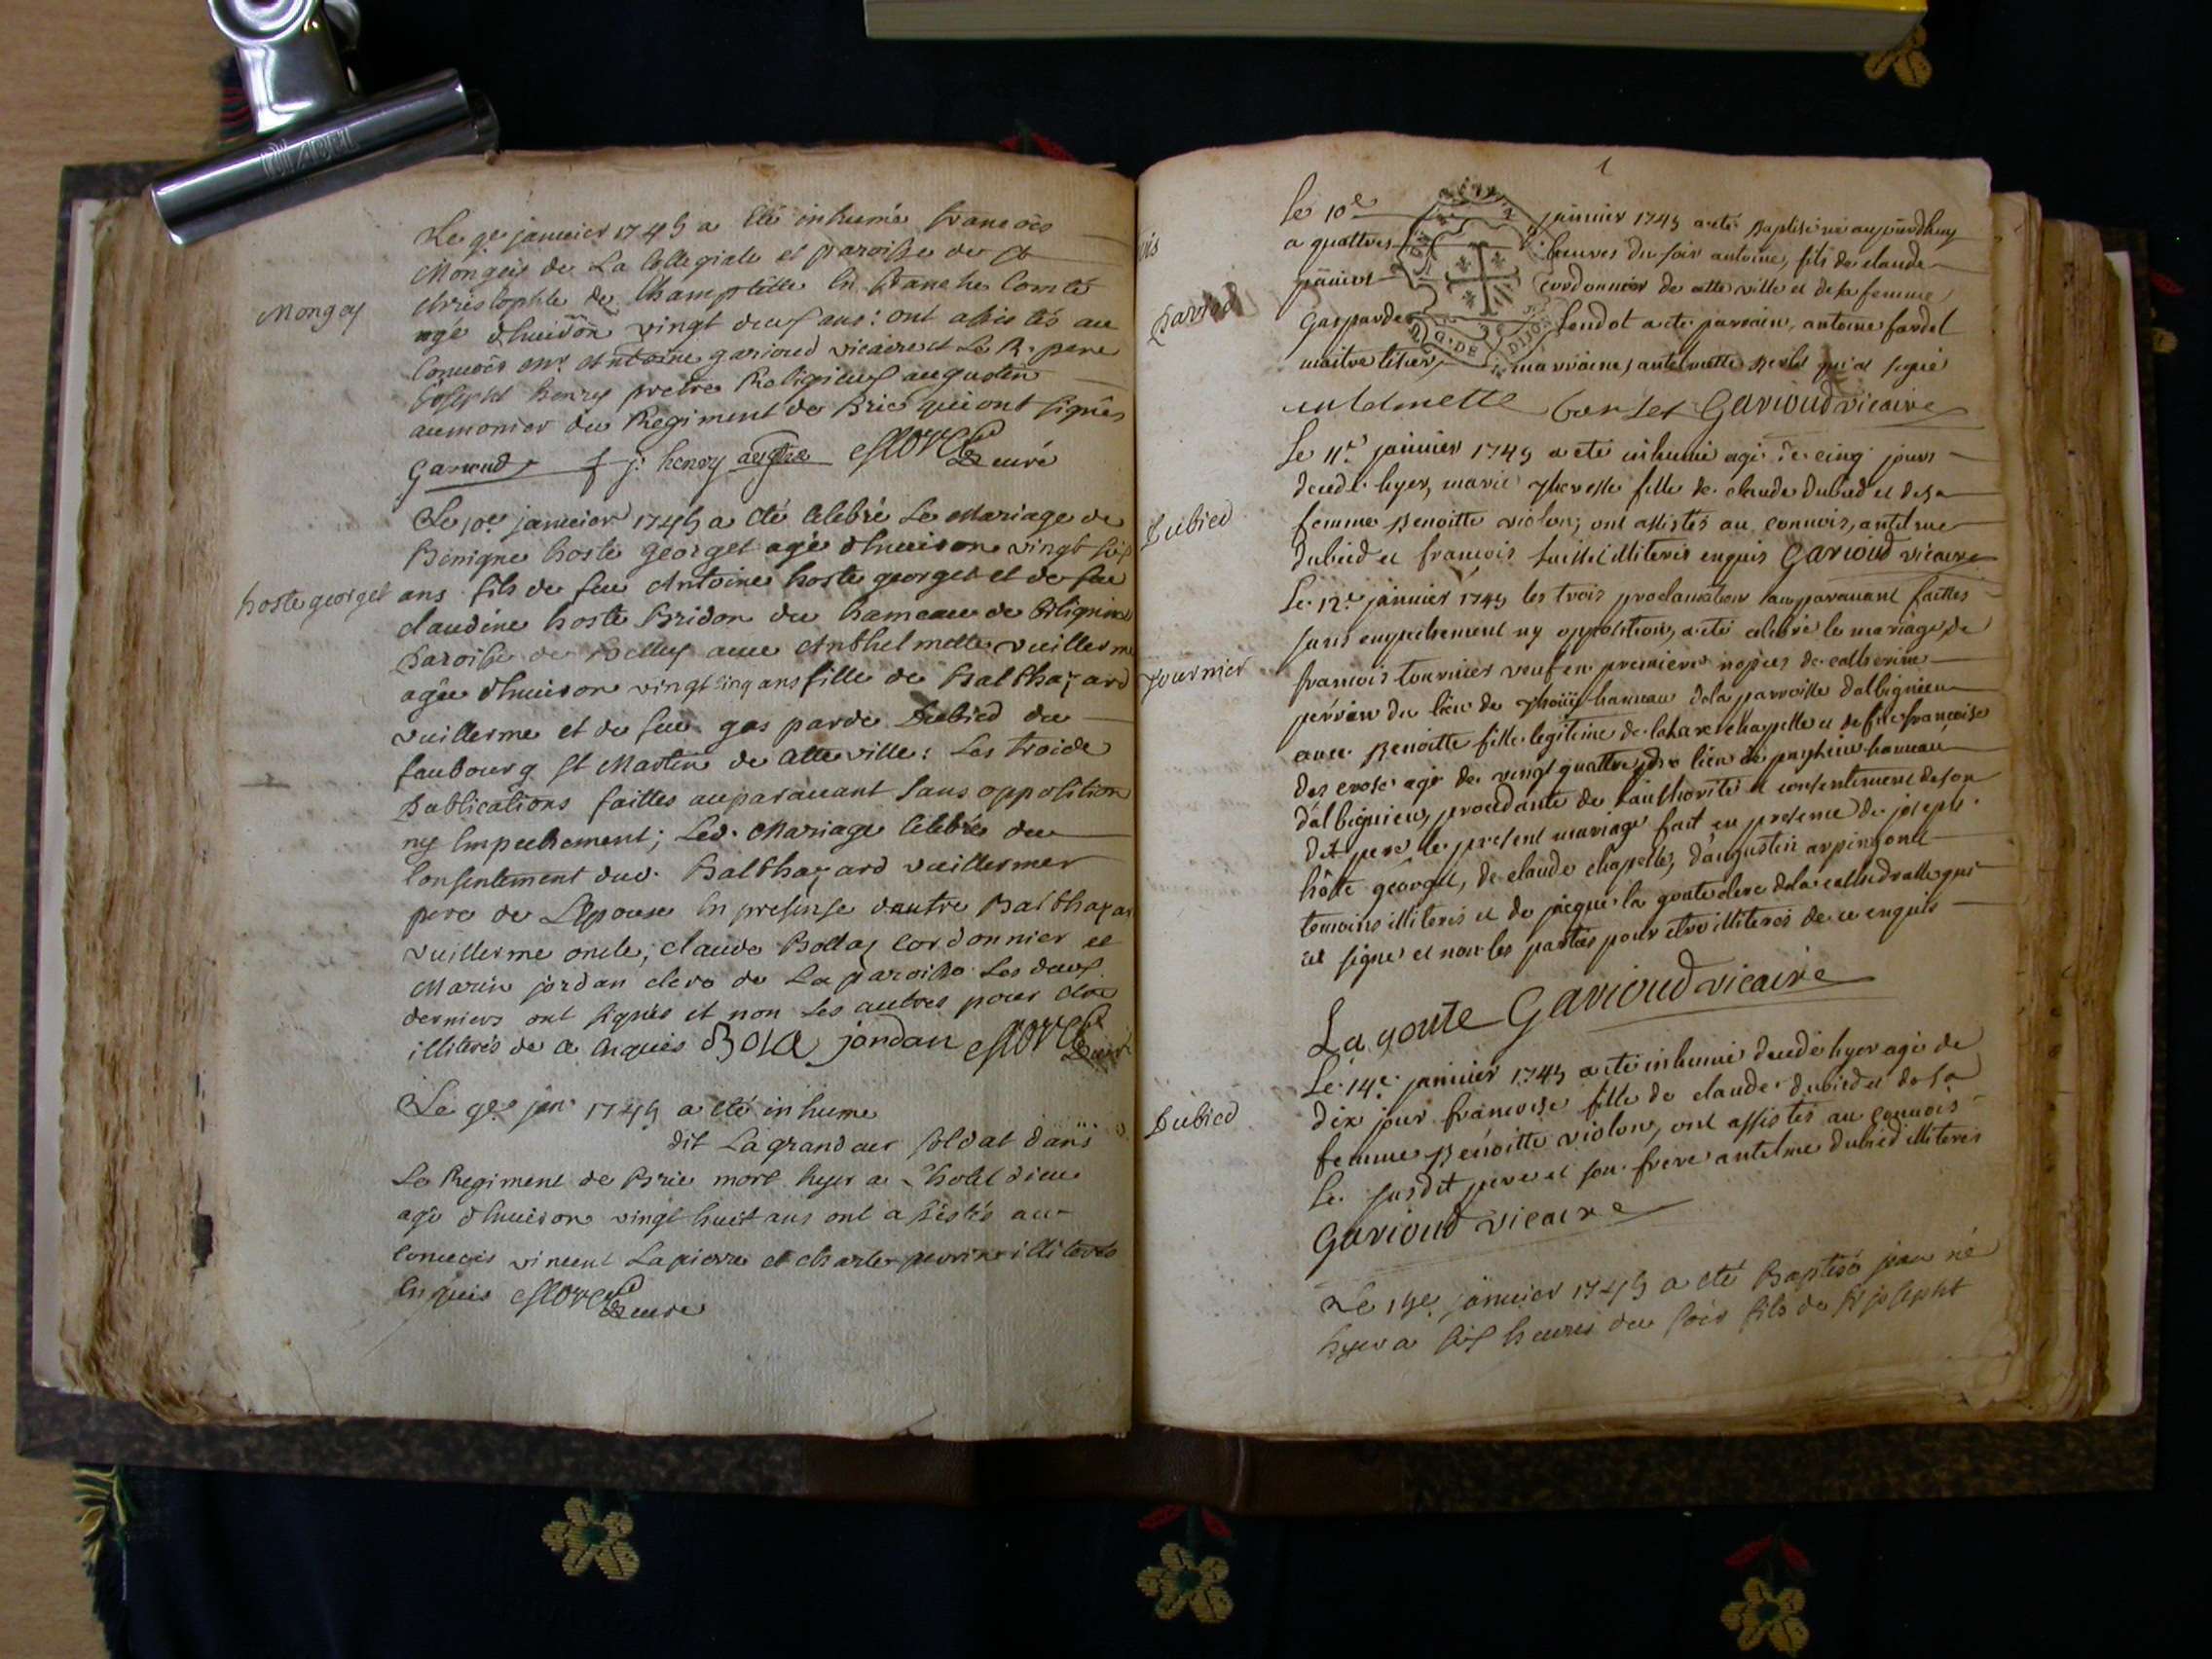 Le 9e janvier 1745 a été inhumé francois
Mongeis de La Collegiale et paroisse de St
christophle de Champlitte En franche Comté
Mongey
agé d'huiron vingt deux ans: ont assistés au
Convois mr. antoine garioud vicaire et Le R. pere
joseph henry pretre Religieux augustin
aumonier du Regiment de Brie qui ont signés
Garioud f j. henry curé
Le 10e janvier 1745 a été Celebré Le Mariage de
Benigne hoste georget agé d'huiron vingt six
hoste georget
ans fils de feu Antoine hoste georget et de feu
claudine hoste Bridon du hameau de Billignin
Paroisse de Belley avec Anthelmette vuillerme
agée d'huiron vingt cinq ans fille de Balthazard
vuillerme et de feue gasparde Dubied du
faubourg St Martin de cette ville: Les troide
Publications faittes auparavant sans opposition
ny Empechement; Led. Mariage Celebré du
Consentement dud. Balthazard vuillermer
pere de L'Epouse En presense dautre Balthazar
vuillerme oncle, claude Bollaz Cordonnier et
Marin jordan clerc de La paroisse Les deux
derniers ont signés et non Les autres pour etre
illiterés de ce Enquis jordan curé
Le 9e janr 1745 a été inhume
dit La grandeur soldat dans
Le Regiment de Brie mort hyer a L'hotel dieu
agé d'huiron vingt huit ans ont assistés au
Convois vincent Lapierre et charle perrin illiterés
Enquis curé
1
le 10e janvier 1745 a eté Baptisé né aujourdhuy
a quattres heures du soir antoine, fils de claude
janier cordonnier de cette ville et de sa femme
Gasparde fendot a eté parrain, antoine fardel
maitre tisser, marraine, antelmette qui a signé
antelmette Garioud vicaire
G. DE DIJON
Le 11e janvier 1745 a eté inhumé agé de cinq jours
decedé hyer, marie theresse fille de claude dubied et de sa
Dubied
femme Benoitte violon; ont assistés au connois, antelme
dubied et francois illiterés enquis Garioud vicaire
Le 12e janvier 1745 les trois proclamations auparavant faittes
sans empechement ny opposition, a eté celebré le mariage de
Tournier
francois tournier veuf en premieres nopces de catherine
perrin du lieu de hameau de la parroisse dalbignieu
avec Benoitte fille legitime de chapelle et de feue francoise
des crose agé de vingt quattre du lieu de hameau
d'albignieu, procedante de l'authorité et consentement de son
dit pere le present mariage fait en presence de joseph
hôste georget, de claude chapelle, d'augustin arpin
temoins illiterés et de jacque la goute clerc de la cathedralle qui
at signé et non les parties pour etre illiterés de ce enquis
La goute Garioud vicaire
Le 14e janvier 1745 a eté inhumé decedé hyer agé de
Dubied
dix jour francoise fille de claude dubied et de sa
femme Benoitte violon, ont assistés au connois
le susdit pere et son frere antelme dubied illiterés
Garioud vicaire
Le janvier 1745 a eté Baptisé jean né
hyer a six heures du soir fils de Sr josepht